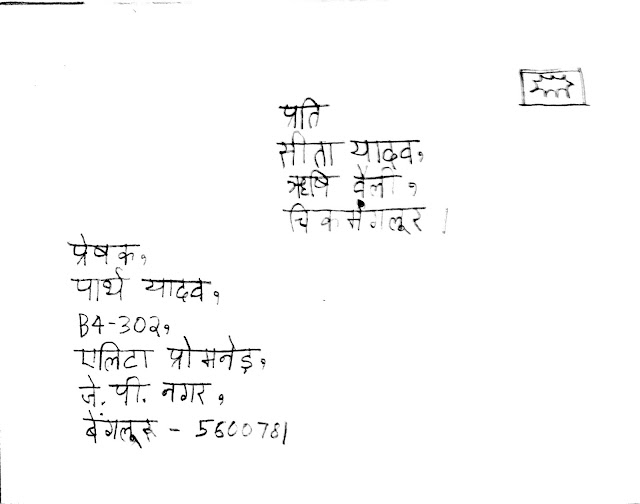 प्रति
सीता यादव,
ऋषि वैली,
चिकमंगलूर।
प्रेषक,
पार्थ यादव,
B4-302,
एलिटा प्रोमनेड,
जे. पी. नगर,
बेंगलूरू - 560078।